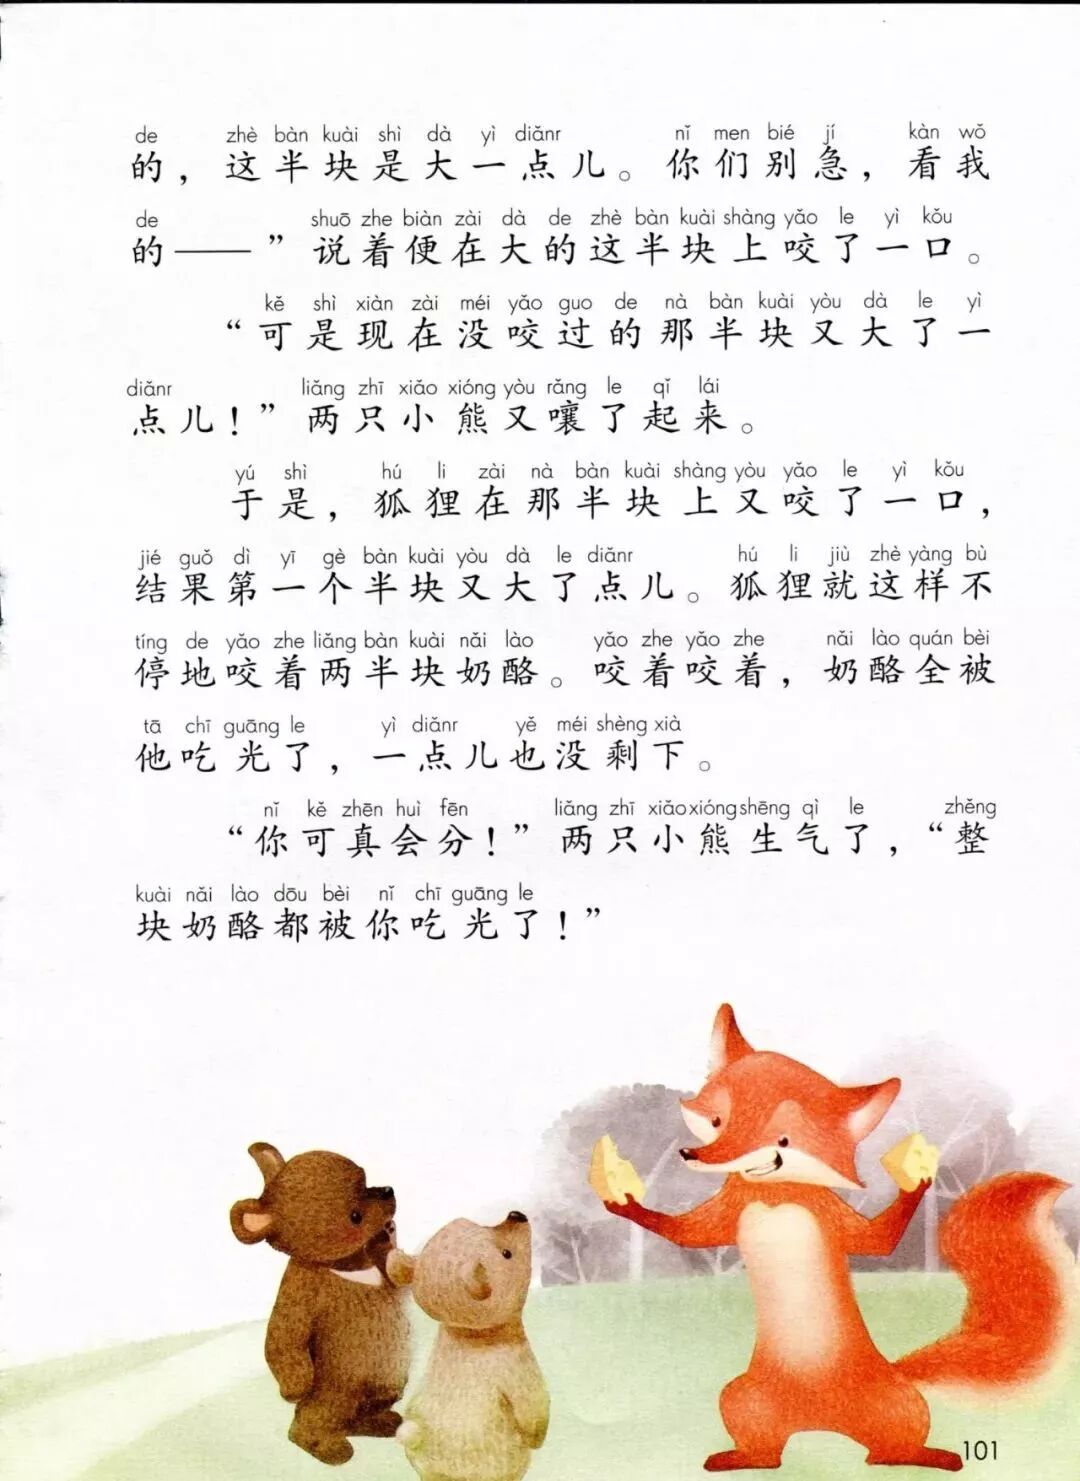 de zhè bàn kuài shì dà yì diǎnr nǐ men bié jí kàn wǒ
的，这半块是大一点儿。你们别急，看我
de shuō zhe biàn zài dà de zhè bàn kuài shàng yǎo le yì kǒu
的——”说着便在大的这半块上咬了一口。
kě shì xiàn zài méi yǎo guo de nà bàn kuài yòu dà le yì
“可是现在没咬过的那半块又大了一
diǎnr liǎng zhī xiǎo xióng yòu rǎng le qǐ lái
点儿！”两只小熊又嚷了起来。
yú shì hú li zài nà bàn kuài shàng yòu yǎo le yì kǒu
于是，狐狸在那半块上又咬了一口，
jié guǒ dì yī gè bàn kuài yòu dà le diǎnr hú li jiù zhè yàng bù
结果第一个半块又大了点儿。狐狸就这样不
tíng de yǎo zhe liǎng bàn kuài nǎi lào yǎo zhe yǎo zhe nǎi lào quán bèi
停地咬着两半块奶酪。咬着咬着，奶酪全被
tā chī guāng le yì diǎnr yě méi shèng xià
他吃光了，一点儿也没剩下。
nǐ kě zhēn huì fēn liǎng zhī xiǎo xióng shēng qì le zhěng
“你可真会分！”两只小熊生气了，“整
kuài nǎi lào dōu bèi nǐ chī guāng le
块奶酪都被你吃光了！”
101